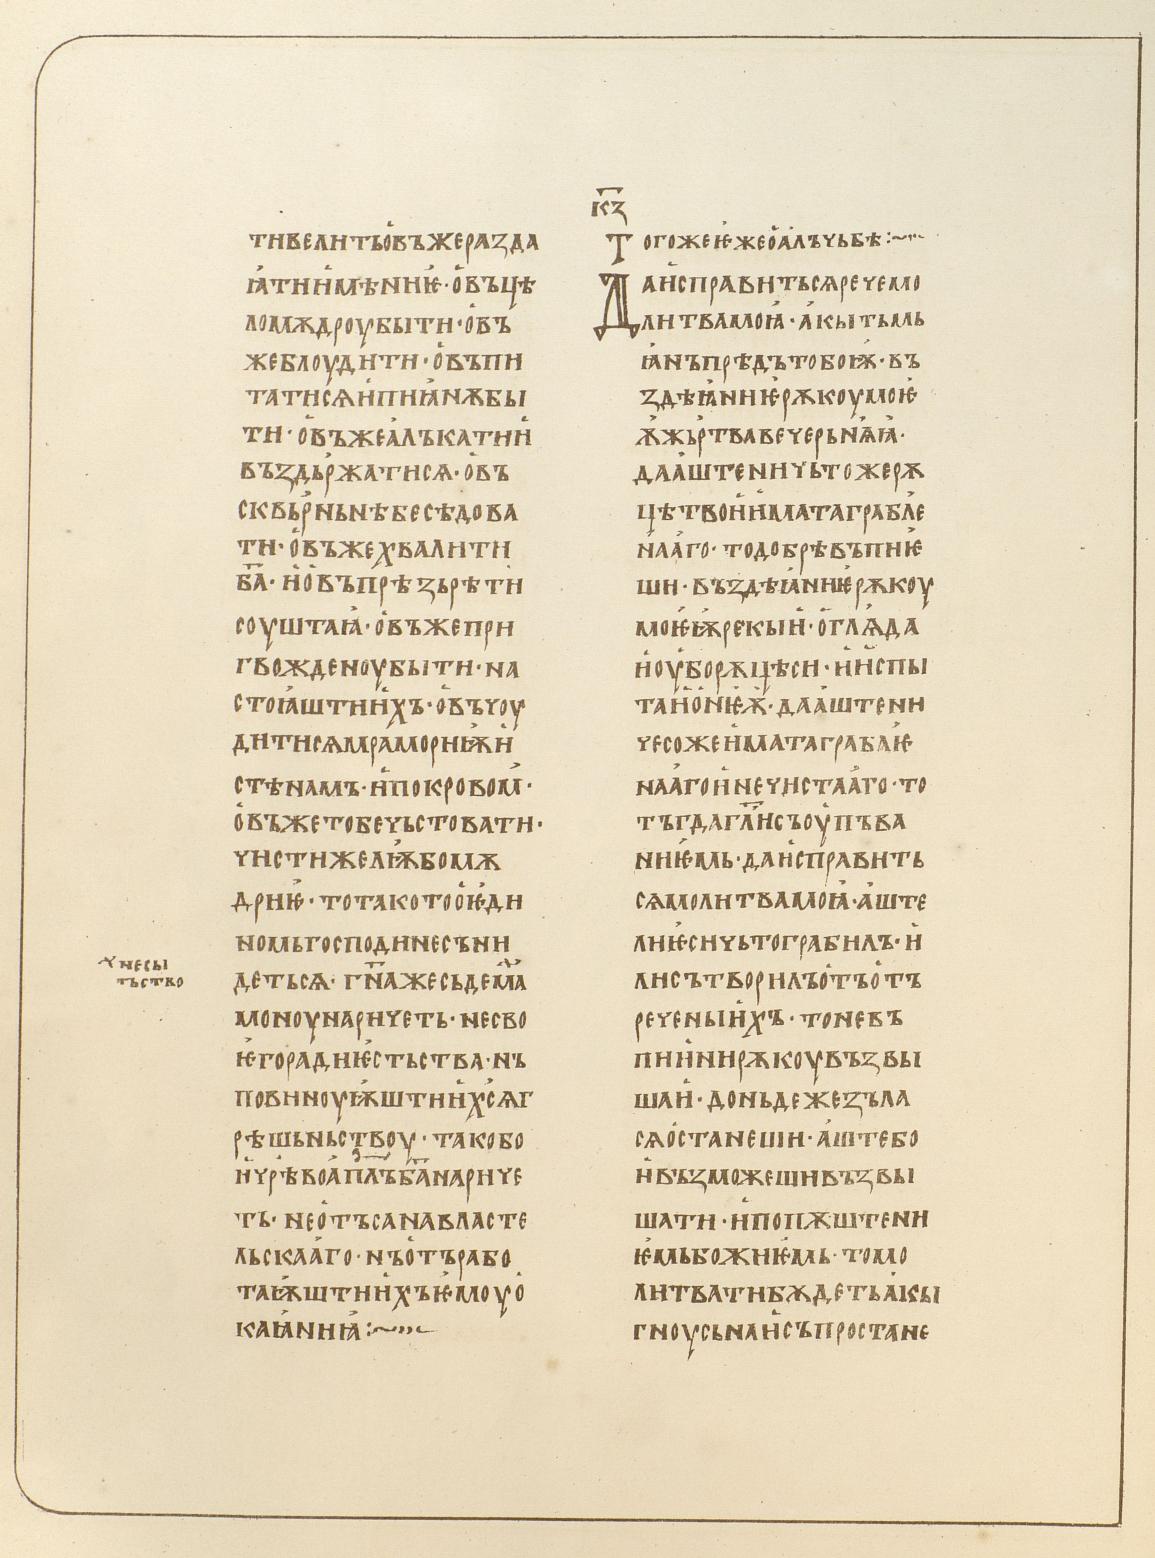 тивелитъовъжеразда
ꙗтиимѣниѥ·овъцѣ
ломѫдроубыти·овъ
жеблоудити·овъпи
татисѧипиꙗнѫбы
ти·овъжеалъкатии
въздьржатисѧ·овъ
сквьрньнѣбесѣдова
ти·овъжехвалити
б҃а·иовъпрѣзьрѣти
соуштаꙗ·овъжепри
гвожденоубыти·на
стоꙗштиихъ·овъчоу
дитисѧмраморниѭи
стѣнамъ·ипокровом·
овъжетобечьстовати·
чистижелѭбомѫ
дриѥ·тотакотоѥди
номьгосподинесъни
детьсѧ·г҃нажесьдема
моноунаричеть·несво
ѥгорадиѥстьства·нъ
повиноуѭштиихсѧг
рѣшьньствоу·такобо
ичрѣвоап҃лъб҃анариче
ть·неотъсанавласте
льскааго·нъотърабо
таѭштиихъѥмоуо
каꙗниꙗ:~
чнесы
тьство
к҃з
Тогожеѥжеоалъчьбѣ:~
Даисправитьсѧречемо
литвамоꙗ·акытьмь
ꙗнъпрѣдътобоѭ·въ
здѣꙗниѥрѫкоумоѥ
ѫжьртвавечерьнѧꙗ·
дааштеничьтожерѫ
цѣтвоииматаграбле
нлаго·тодобрѣвъпиѥ
ши·въздѣꙗниѥрѫкоу
моѥѭрекыи·оглѧда
иоуборѫцѣси·ииспы
таионѥѫ·дааштени
чесожеиматаграблѥ
наагоинечистааго·то
тъгдагл҃исъоупъва
ниѥмь·даисправить
сѧмолитвамоꙗ·аште
лиѥсичьтограбилъ·и
лисътворилъотъотъ
реченыихъ·тоневъ
пиинирѫкоувъзвы
шаи·доньдежезъла
сѧостанеши·аштебо
ивъзможешивъзвы
шати·ипопѫштени
ѥмьбожиѥмь·томо
литватибѫдетьакы
гноусьнаисъпростане